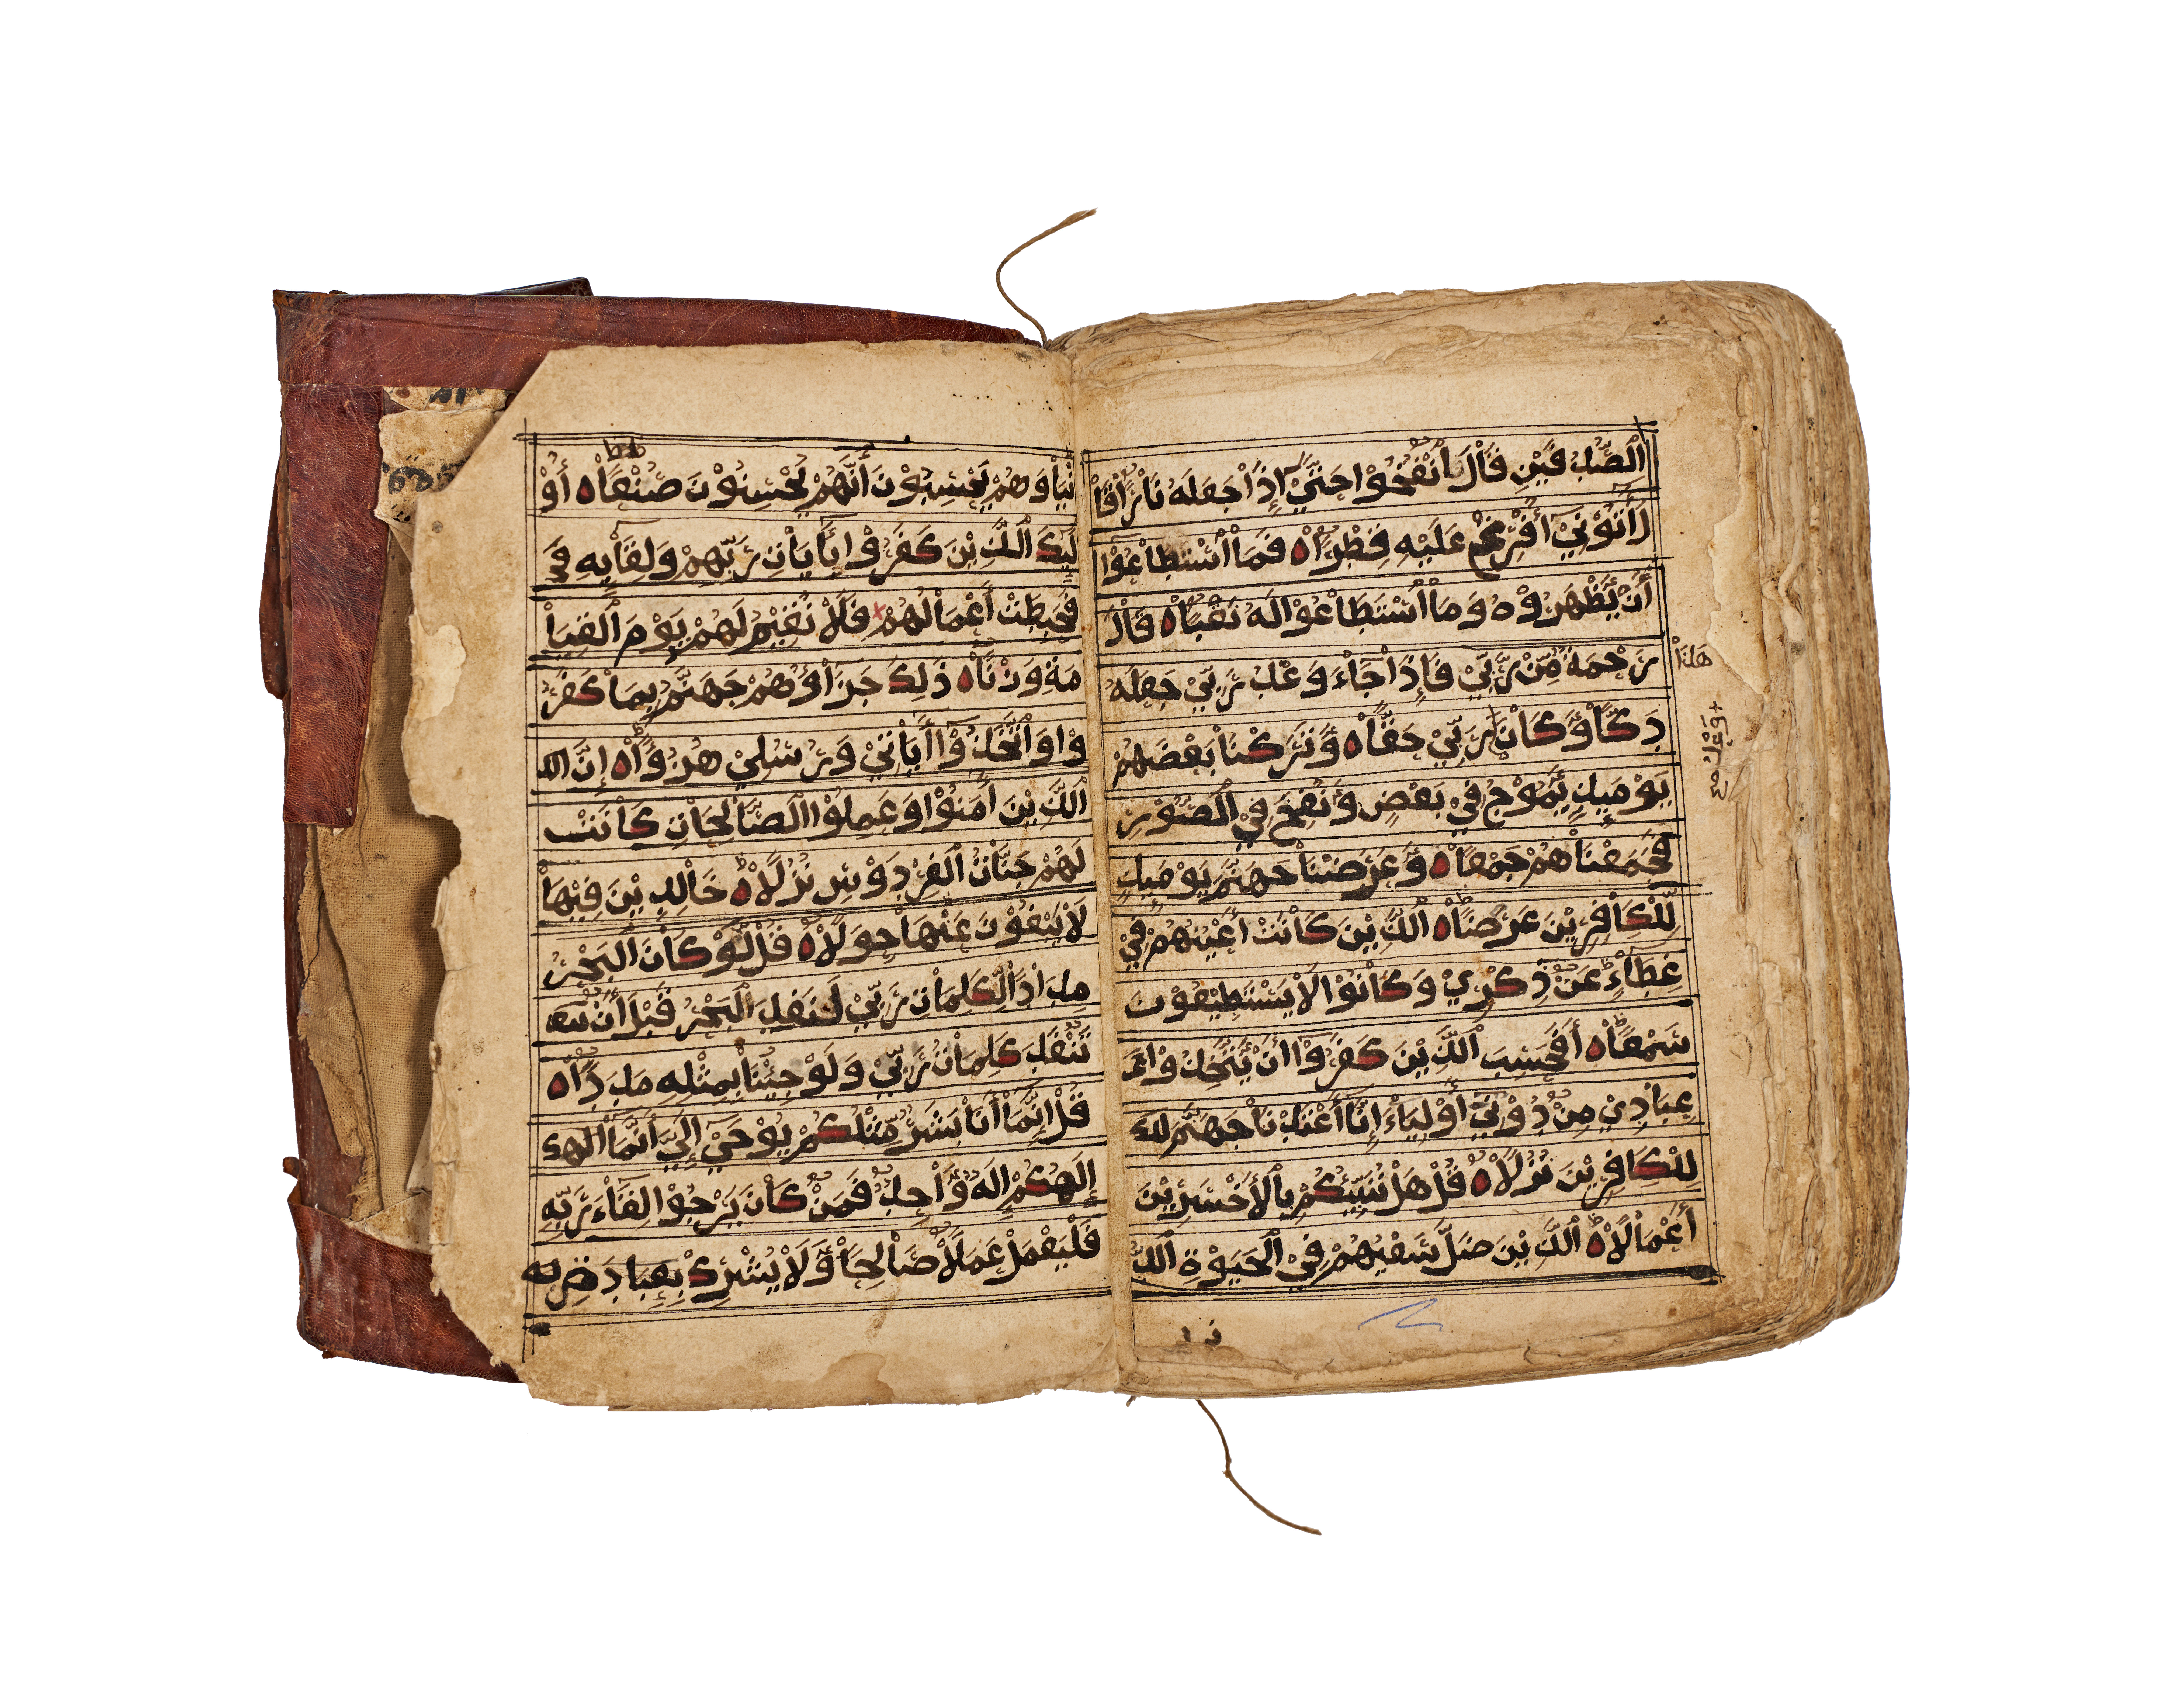 اَلصَّدَفَيْنِ قَاْلَ اْنْفُخُوْا حَتَّيْ إِذَاْ جَعَلَهُ نَاْرًاْ قَاْ
لَ أَتُوْنِيْ أُفْرِغْ عَلَيْهِ قِطْرًاْ ه فَمَا اْسْتَطَاْعُوْا
أَنْ يَّظْهَرُوْهُ وَمَاْ اْسْتَطَاْعُوْا لَهُ نَقْبًاْ ه قَاْلَ
هَذَاْ
رَحْمَةٌ مِّنْ رَّبِّيْ فَإِذَاْ جَاْءَ وَعْدُ رَبِّيْ جَعَلَهُ
دَكَّاْ وَكَاْنَ رَبِّيْ حَقًّاْ ه وَتَرَكْنَاْ بَعْضَهُمْ
وَعْدُ صح
يَوْمَئِذٍ يَّمُوْجُ فِيْ بَعْضٍ وَّنُفِخَ فِيْ الْصُّوْرِ
فَجَمَعْنَاْهُمْ جَمْعًاْ ه وَّعَرَضْنَاْ جَهَنَّمَ يَوْمَئِذٍ
لِّلْكَاْفِرِيْنَ عَرْضًاْ ه الَّذِيْنَ كَاْنَتْ أَعْيُنُهُمْ فِيْ
غِطَاْءٍ عَنْ ذِكْرِيْ وَكَاْنُوْا لَاْ يَسْتَطِيْعُوْنَ
سَمْعًاْ ه أَفَحَسِبَ الَّذِيْنَ كَفَرُوْا أَنْ يَّتَّخِذُوْا
عِبَاْدِيْ مِنْ دُوْنِيْ أَوْلِيَاْءَ إِنَّاْ أَعْتَدْنَاْ جَهَنَّمَ
لِلْكَاْفِرِيْنَ نُزُلًاْ ه قُلْ هَلْ نُنَبِّئُكُمْ بِالْأَخْسَرِيْنَ
أَعْمَاْلًاْ ه الَّذِيْنَ ضَلَّ سَعْيُهُمْ فِيْ الْحَيَوْةِ الْدُّ
نْيَاْ وَهُمْ يَحْسِبُوْنَ أَنَّهُمْ يُحْسِنُوْنَ صُنْعًاْ ه أُوْ
لَئِكَ الَّذِيْنَ كَفَرُوْا بِأَيَاْتِ رَبِّهِمْ وَلِقَاْئِهِ
فَحَبِطَتْ أَعْمَاْلُهُمْ فَلَاْ نُقِيْمُ لَهُمْ يَوْمَ الْقِيَاْ
مَةِ وَزْنًاْ ه ذَلِكَ جَزَاْؤُهُمْ جَهَنَّمُ بِمَاْ كَفَرُ
وْا وَاتَّخَذُوْا أَيَاْتِيْ وَرُسُلِيْ هُزُوًاْ ه إِنَّ
الَّذِيْنَ أَمَنُوْا وَعَمِلُوْا الصَّاْلِحَاْتِ كَاْنَتْ
لَهُمْ جَنَّاْتُ الْفِرْدَوْسِ نُزُلًاْ ه خَاْلِدِيْنَ فِيْهَاْ
لَاْ يَبْغُوْنَ عَنْهَاْ حِوَلًاْ ه قُلْ لَّوْ كَاْنَ الْبَحْرُ
مِدَاْدًا لِّكَلِمَاْتِ رَبِّيْ لَنَفِدَ الْبَحْرُ قَبْلَ أَنْ
تَنْفَدَ كَلِمَاْتُ رَبِّيْ وَلَوْ جِئْنَاْ بِمِثْلِهِ مَدَدًاْ ه
قُلْ إِنَّمَاْ أَنَاْ بَشَرٌ مِّثْلُكُمْ يُوْحَيْ إِلَيَّ أَنَّمَاْ
إِلَهُكُمْ إِلَهٌ وَّاْحِدٌ فَمَنْ كَاْنَ يَرْجُوْا لِقَاْءَ رَبِّهِ
فَلْيَعْمَلْ عَمَلًاْ صَاْلِحًاْ وَّلَاْ يُشْرِكْ بِعِبَاْدَةِ رَبِّهِ